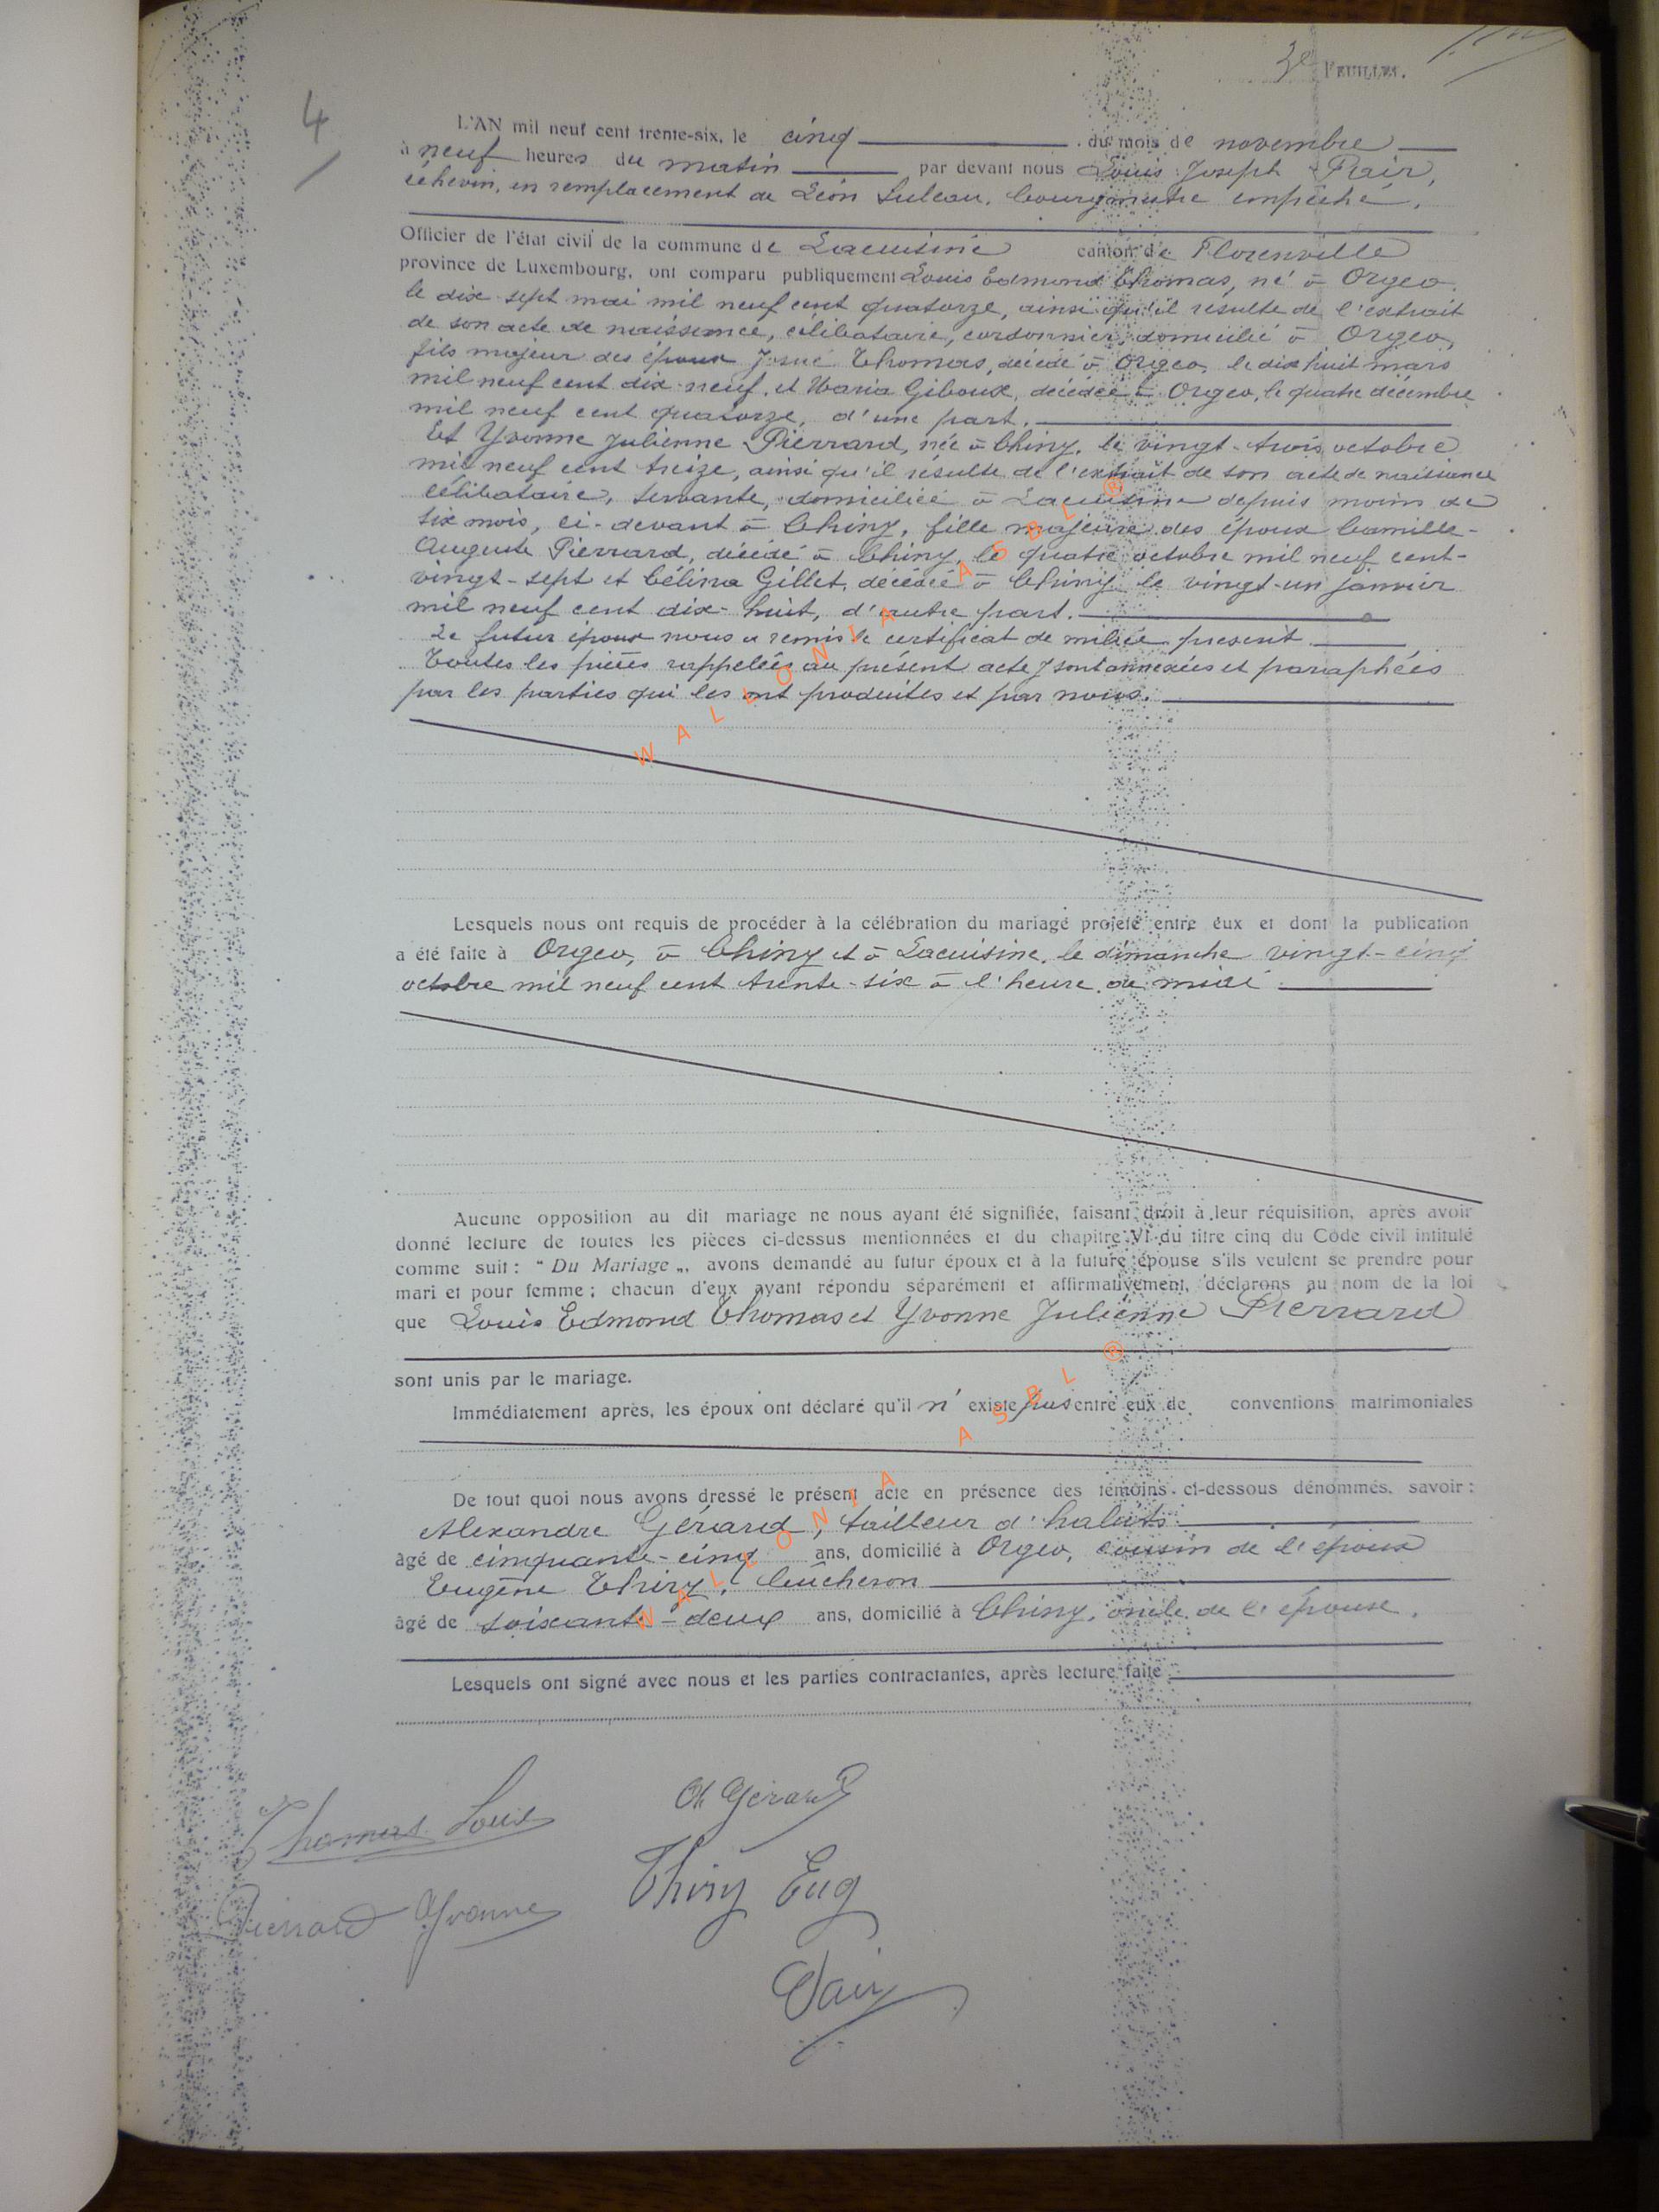 3e FEUILLET.
4
L'AN mil neuf cent trente-six, le cinq du mois de novembre
à neuf heures du matin par devant nous Louis Joseph
échevin, en remplacement de Léon Suleau, bourgmestre empêché,
Officier de l'état civil de la commune de Lacuisine canton de Florenville
province de Luxembourg, ont comparu publiquement Louis Edmond Thomas, né à Orgeo,
le dix-sept mai mil neuf cent quatorze, ainsi qu'il résulte de l'extrait
de son acte de naissance, célibataire, cordonnier, domicilié à Orgeo,
fils majeur des époux Josué Thomas, décédé à Orgeo, le dix huit mars
mil neuf cent dix-neuf, et Maria Giboux, décédée à Orgeo, le quatre décembre
mil neuf cent quatorze, d'une part.
Et Yvonne Julienne Pierrard, née à Chiny, le vingt-trois octobre
mil neuf cent treize, ainsi qu'il résulte de l'extrait de son acte de naissance
célibataire, servante, domiciliée à Lacuisine depuis moins de
six mois, ci-devant à Chiny, fille majeure des époux Camille-
Auguste Pierrard, décédé à Chiny, le quatre octobre mil neuf cent-
vingt-sept et Célina Gillet, décédée à Chiny le vingt-un janvier
mil neuf cent dix-huit, d'autre part.
Le futur époux nous a remis le certificat de milice prescrit
Toutes les pièces rappelées au présent acte y sont annexées et paraphées
par les parties qui les ont produites et par nous.
WALLONIA ASBL ®
Lesquels nous ont requis de procéder à la célébration du mariage projeté entre eux et dont la publication
a été faite à Orgeo, à Chiny et à Lacuisine, le dimanche vingt-cinq
octobre mil neuf cent trente-six à l'heure de midi
Aucune opposition au dit mariage ne nous ayant été signifiée, faisant droit à leur réquisition, après avoir
donné lecture de toutes les pièces ci-dessus mentionnées et du chapitre VI du titre cinq du Code civil intitulé
comme suit : “ Du Mariage „, avons demandé au futur époux et à la future épouse s'ils veulent se prendre pour
mari et pour femme ; chacun d'eux ayant répondu séparément et affirmativement, déclarons au nom de la loi
que Louis Edmond Thomas et Yvonne Julienne Pierrard
sont unis par le mariage.
Immédiatement après, les époux ont déclaré qu'il n'existe pas entre eux de conventions matrimoniales
De tout quoi nous avons dressé le présent acte en présence des témoins ci-dessous dénommés, savoir :
Alexandre Gérard, tailleur d'habits
âgé de cinquante-cinq ans, domicilié à Orgeo, cousin de l'époux
Eugène Thiry, bûcheron
âgé de soixante-deux ans, domicilié à Chiny, oncle de l'épouse.
WALLONIA ASBL ®
Lesquels ont signé avec nous et les parties contractantes, après lecture faite
Thomas Louis
Gérard
Thiry Eug
Pierrard Yvonne